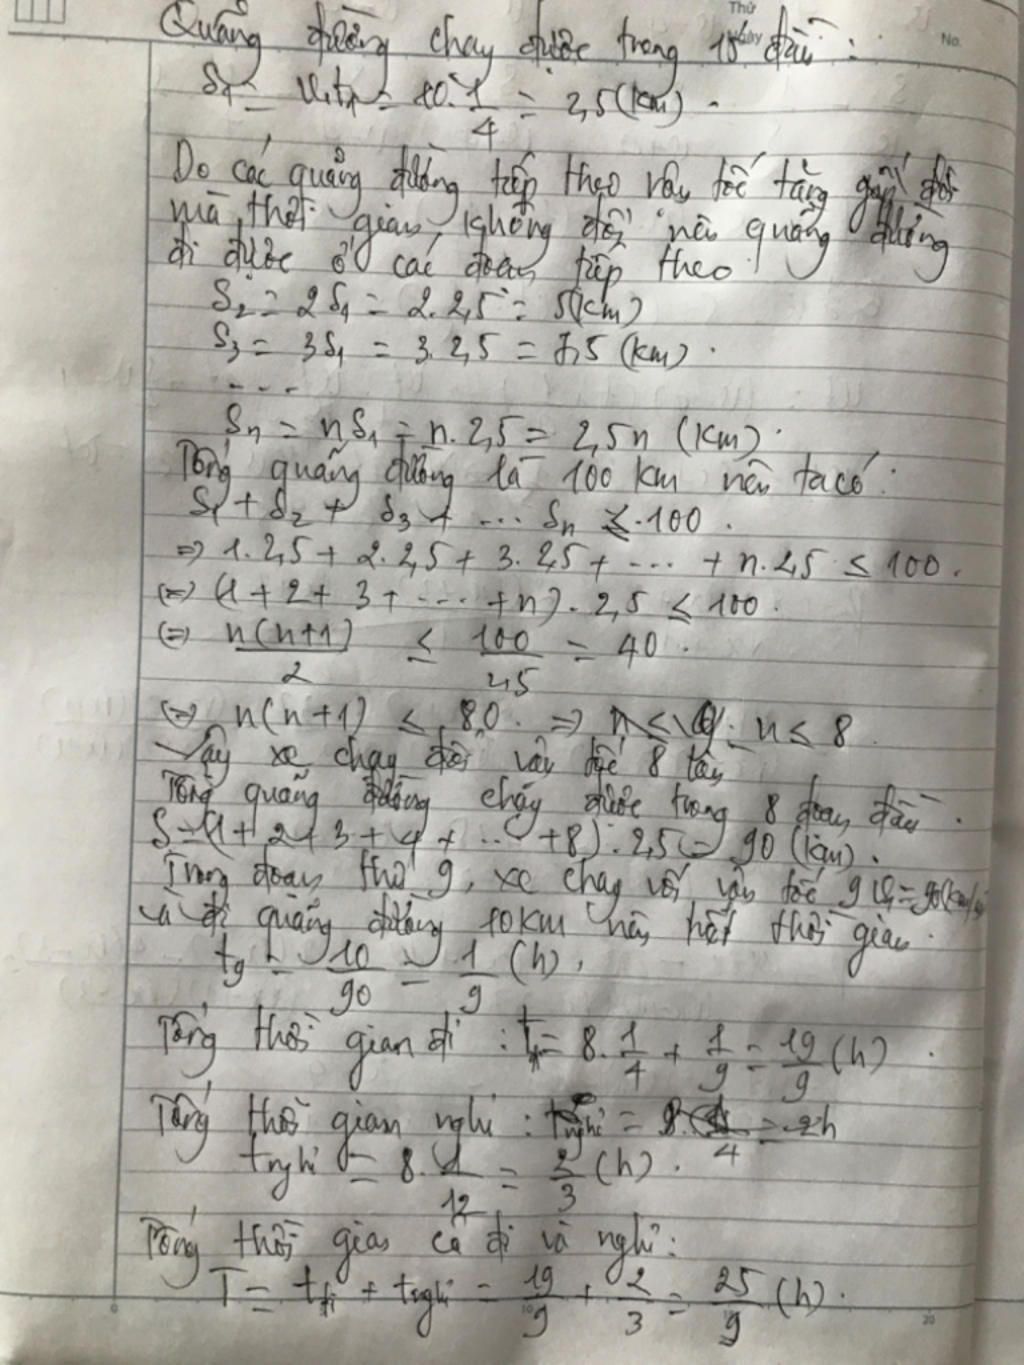 Thứ
Ngày
No.
Quãng đường chạy được trong 15' đầu :
S1 = v1t1 = 10. 1/4 = 2,5 (km) .
Do các quãng đường tiếp theo vận tốc tăng gấp đôi
mà thời gian không đổi nên quãng đường
đi được ở các đoạn tiếp theo
S2 = 2S1 = 2. 2,5 = 5(km)
S3 = 3S1 = 3. 2,5 = 7,5 (km) .
...
Sn = nS1 = n. 2,5 = 2,5n (km) .
Tổng quãng đường là 100 km nên ta có :
S1 + S2 + S3 + ... Sn ≤ 100 .
=> 1. 2,5 + 2. 2,5 + 3. 2,5 + ... + n. 2,5 ≤ 100 .
(=) (1 + 2 + 3 + ... + n) . 2,5 ≤ 100 .
(=) n(n+1)/2 ≤ 100/2,5 = 40 .
(=) n(n+1) ≤ 80. => n ≤ 8
Vậy xe chạy đổi vận tốc 8 lần
Tổng quãng đường chạy được trong 8 đoạn đầu .
S = (1 + 2 + 3 + 4 + ... + 8) . 2,5 = 90 (km) .
Trong đoạn thứ 9, xe chạy với vận tốc 9v1 = 90(km/h)
và đi quãng đường 10km nên hết thời gian .
t9 = 10/90 = 1/9 (h) .
Tổng thời gian đi : t = 8. 1/4 + 1/9 = 19/9 (h) .
Tổng thời gian nghỉ :
tnghỉ = 8. 1/12 = 2/3 (h) .
Tổng thời gian cả đi và nghỉ :
T = tđi + tnghỉ = 19/9 + 2/3 = 25/9 (h) .
0 10 20